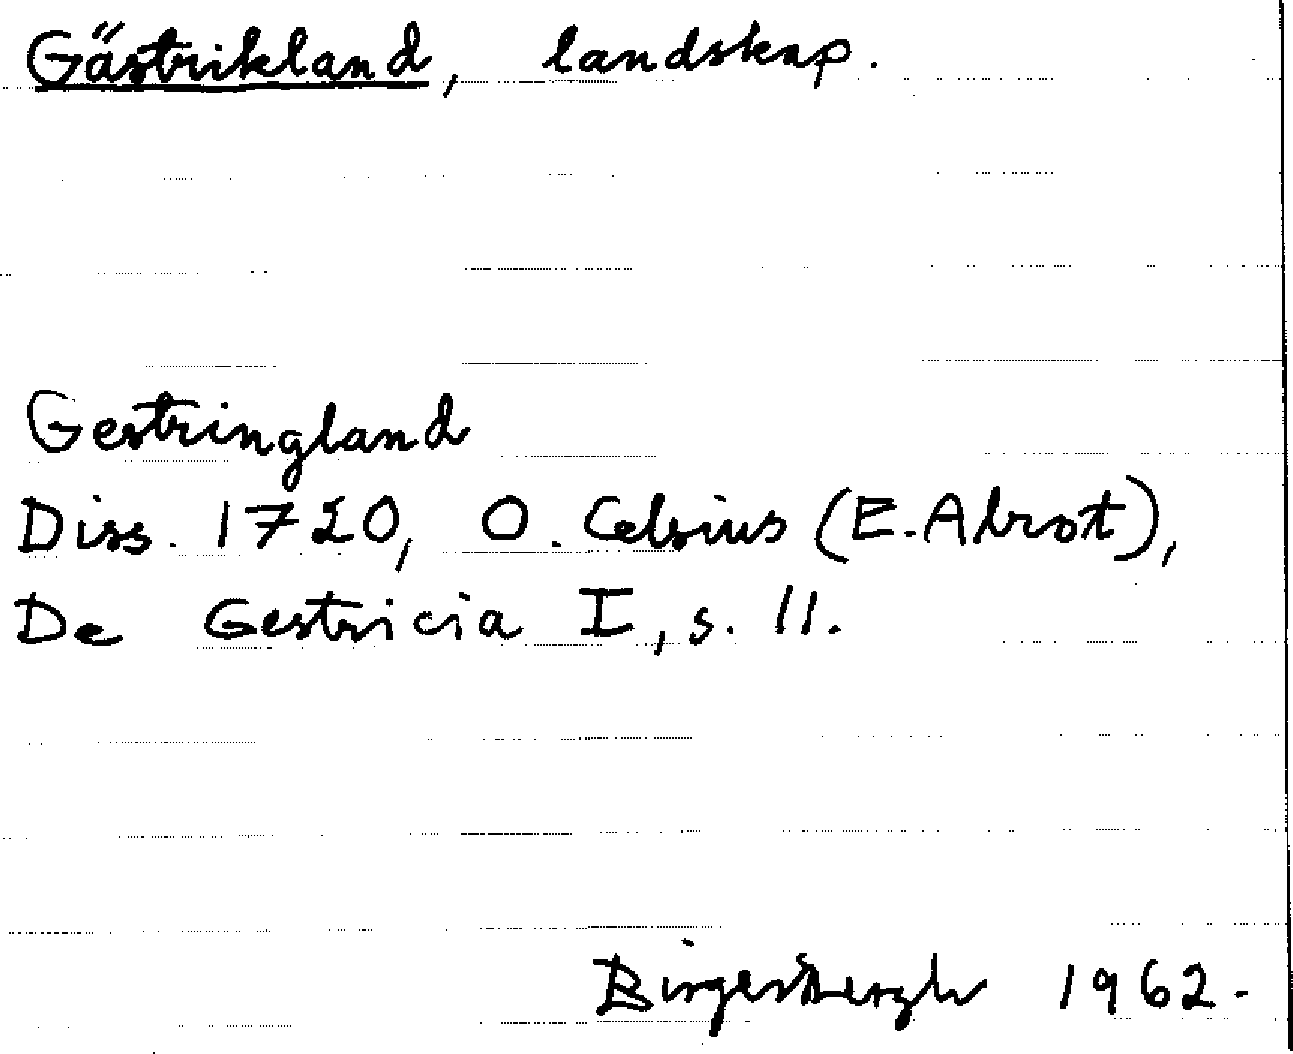 Gästrikland, landskap.
Gestringland
Diss. 1720, O. Celsius (E. Abrot),
De Gestricia I, s. 11.
1962.